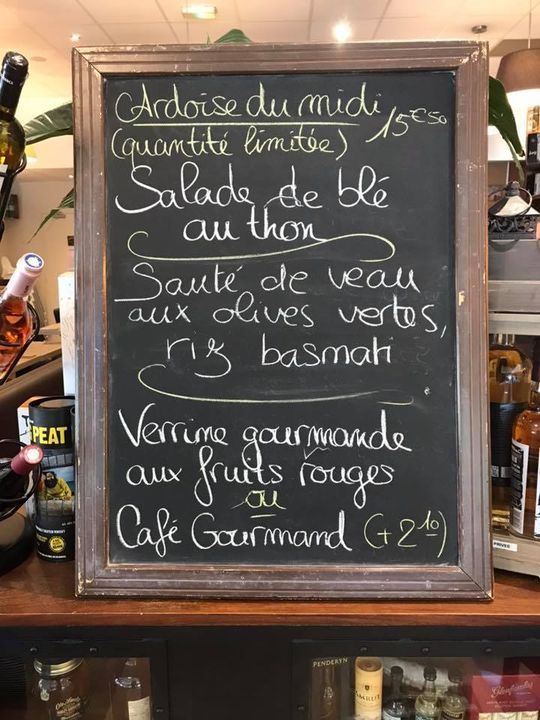 Ardoise du midi 15€50
(quantité limitée)
Salade de blé
au thon
Sauté de veau
aux olives vertes,
riz basmati
Verrine gourmande
aux fruits rouges
ou
Café Gourmand (+2,10)
PEAT
PRIVEE
PENDERYN
AMRUT
Glenfiddich